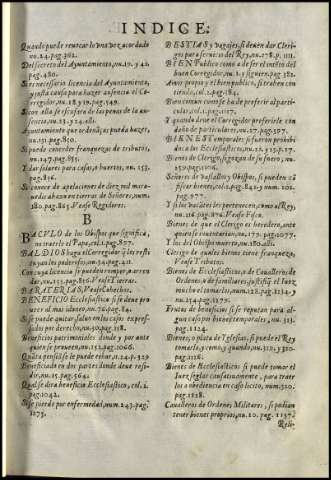 INDICE:
Quando puede reuocar lo vna vez acordado
nu.24.pag.
Del secreto del Ayuntamiento, nu.19. y 42.
pag.480.
Si es necessario licencia del Ayuntamiento,
y justa causa para hazer ausencia el Co-
rregidor, nu.18. y 19. pag.549.
Si con ella se escusara de las penas de la au-
sencia, nu.23. y 24. alli.
Ayuntamiento que ordenãças pueda hazer,
nu.151. pag.810.
Si puede conceder franquezas de tributos,
nu.147. pag.855.
Y dar solares para casas, o huertos, nu.153.
pag.856.
Si conoce de apelaciones de diez mil mara-
uedis abaxo en tierras de Señores, num.
180. pag.865. Vease Regidores.
B
BACVLO de los Obispos que significa,
no trae le el Papa, col.1. pag.807.
BALDIOS haga el Corregidor q̃ les resti-
tuyan los poderosos, nu.34. pag.42.
Con cuya licencia se pueden romper, o arren
dar, nu.153. pag.856. Vease Tierras.
BARATERIAS, Vease Cohechos.
BENEFICIO Ecclesiastico si se deue pro
ueer al mas idoneo, nu.76. pag.84.
Si se puede quitar, saluo en los casos expres-
sados por derecho, nu.50. pag.318.
Beneficios patrimoniales donde y por ante
quien se prouean, nu.152. pag.1066.
Quãta pensiõ se le puede echar, nu.24. p.329
Beneficiado en dos partes donde deue resi-
dir, nu.15. pag.564.
Qual se dira beneficio Ecclesiastico, col.1.
pag.1042.
Si se puede por enfermedad, num.243. pag.
1273.
BESTIAS y bagajes, si deuen dar Cleri-
gos para seruicio del Rey, nu.178. p.1111.
BIEN Publico como a de ser el intento del
buen Corregidor, nu.2. y siguen. pag.382.
Bien propio y el bien publico, si traben con
tienda, col.2. pag.184.
Bien comun como se ha de preferir al parti-
cular, col.1. pag.117.
Y quando deue el Corregidor preferirle con
daño de particulares, nu.57. pag.597.
BIENES temporales, si fueron prohibi-
dos a los Ecclesiasticos, nu.22. y 23. pag.527.
Bienes de Clerigo, si gozan de su fuero, nu.
259. pag.1106.
Señores de vassallos y Obispos, si pueden cõ
fiscar bienes, col.2. pag.842. y num.102.
pag.977.
Y si los vacãtes les pertenecen, como al Rey,
nu.216. pag.876. Vease Fisco.
Bienes de que el Clerigo es heredero, ante
quien se inuentarian, nu.170. pag.1077.
Y los del Obispo muerto, nu.180. alli.
Clerigo de quales bienes tiene franqueza,
Vease Tributos.
Bienes de Ecclesiasticos, o de Caualleros de
Ordenes, o de familiares, justifica el Iuez
mire el tomarlos, num.222. pag.1234. y
nu.254. pag.1279.
Frutos de beneficios si se reputan para al-
gun caso por bienes temporales, nu.311.
pag.1124.
Bienes, o plata de Yglesias, si puede el Rey
tomarlos, y mando, quando, nu.319. y 320.
pag.1126.
Bienes de Ecclesiasticos si puede tomar el
Iuez seglar cautamente, para traer
los a obediencia en caso licito, num.320.
pag.1128.
Caualleros de Ordenes Militares, si podian
tener bienes proprios, nu.10. pag.1137.
Reli-